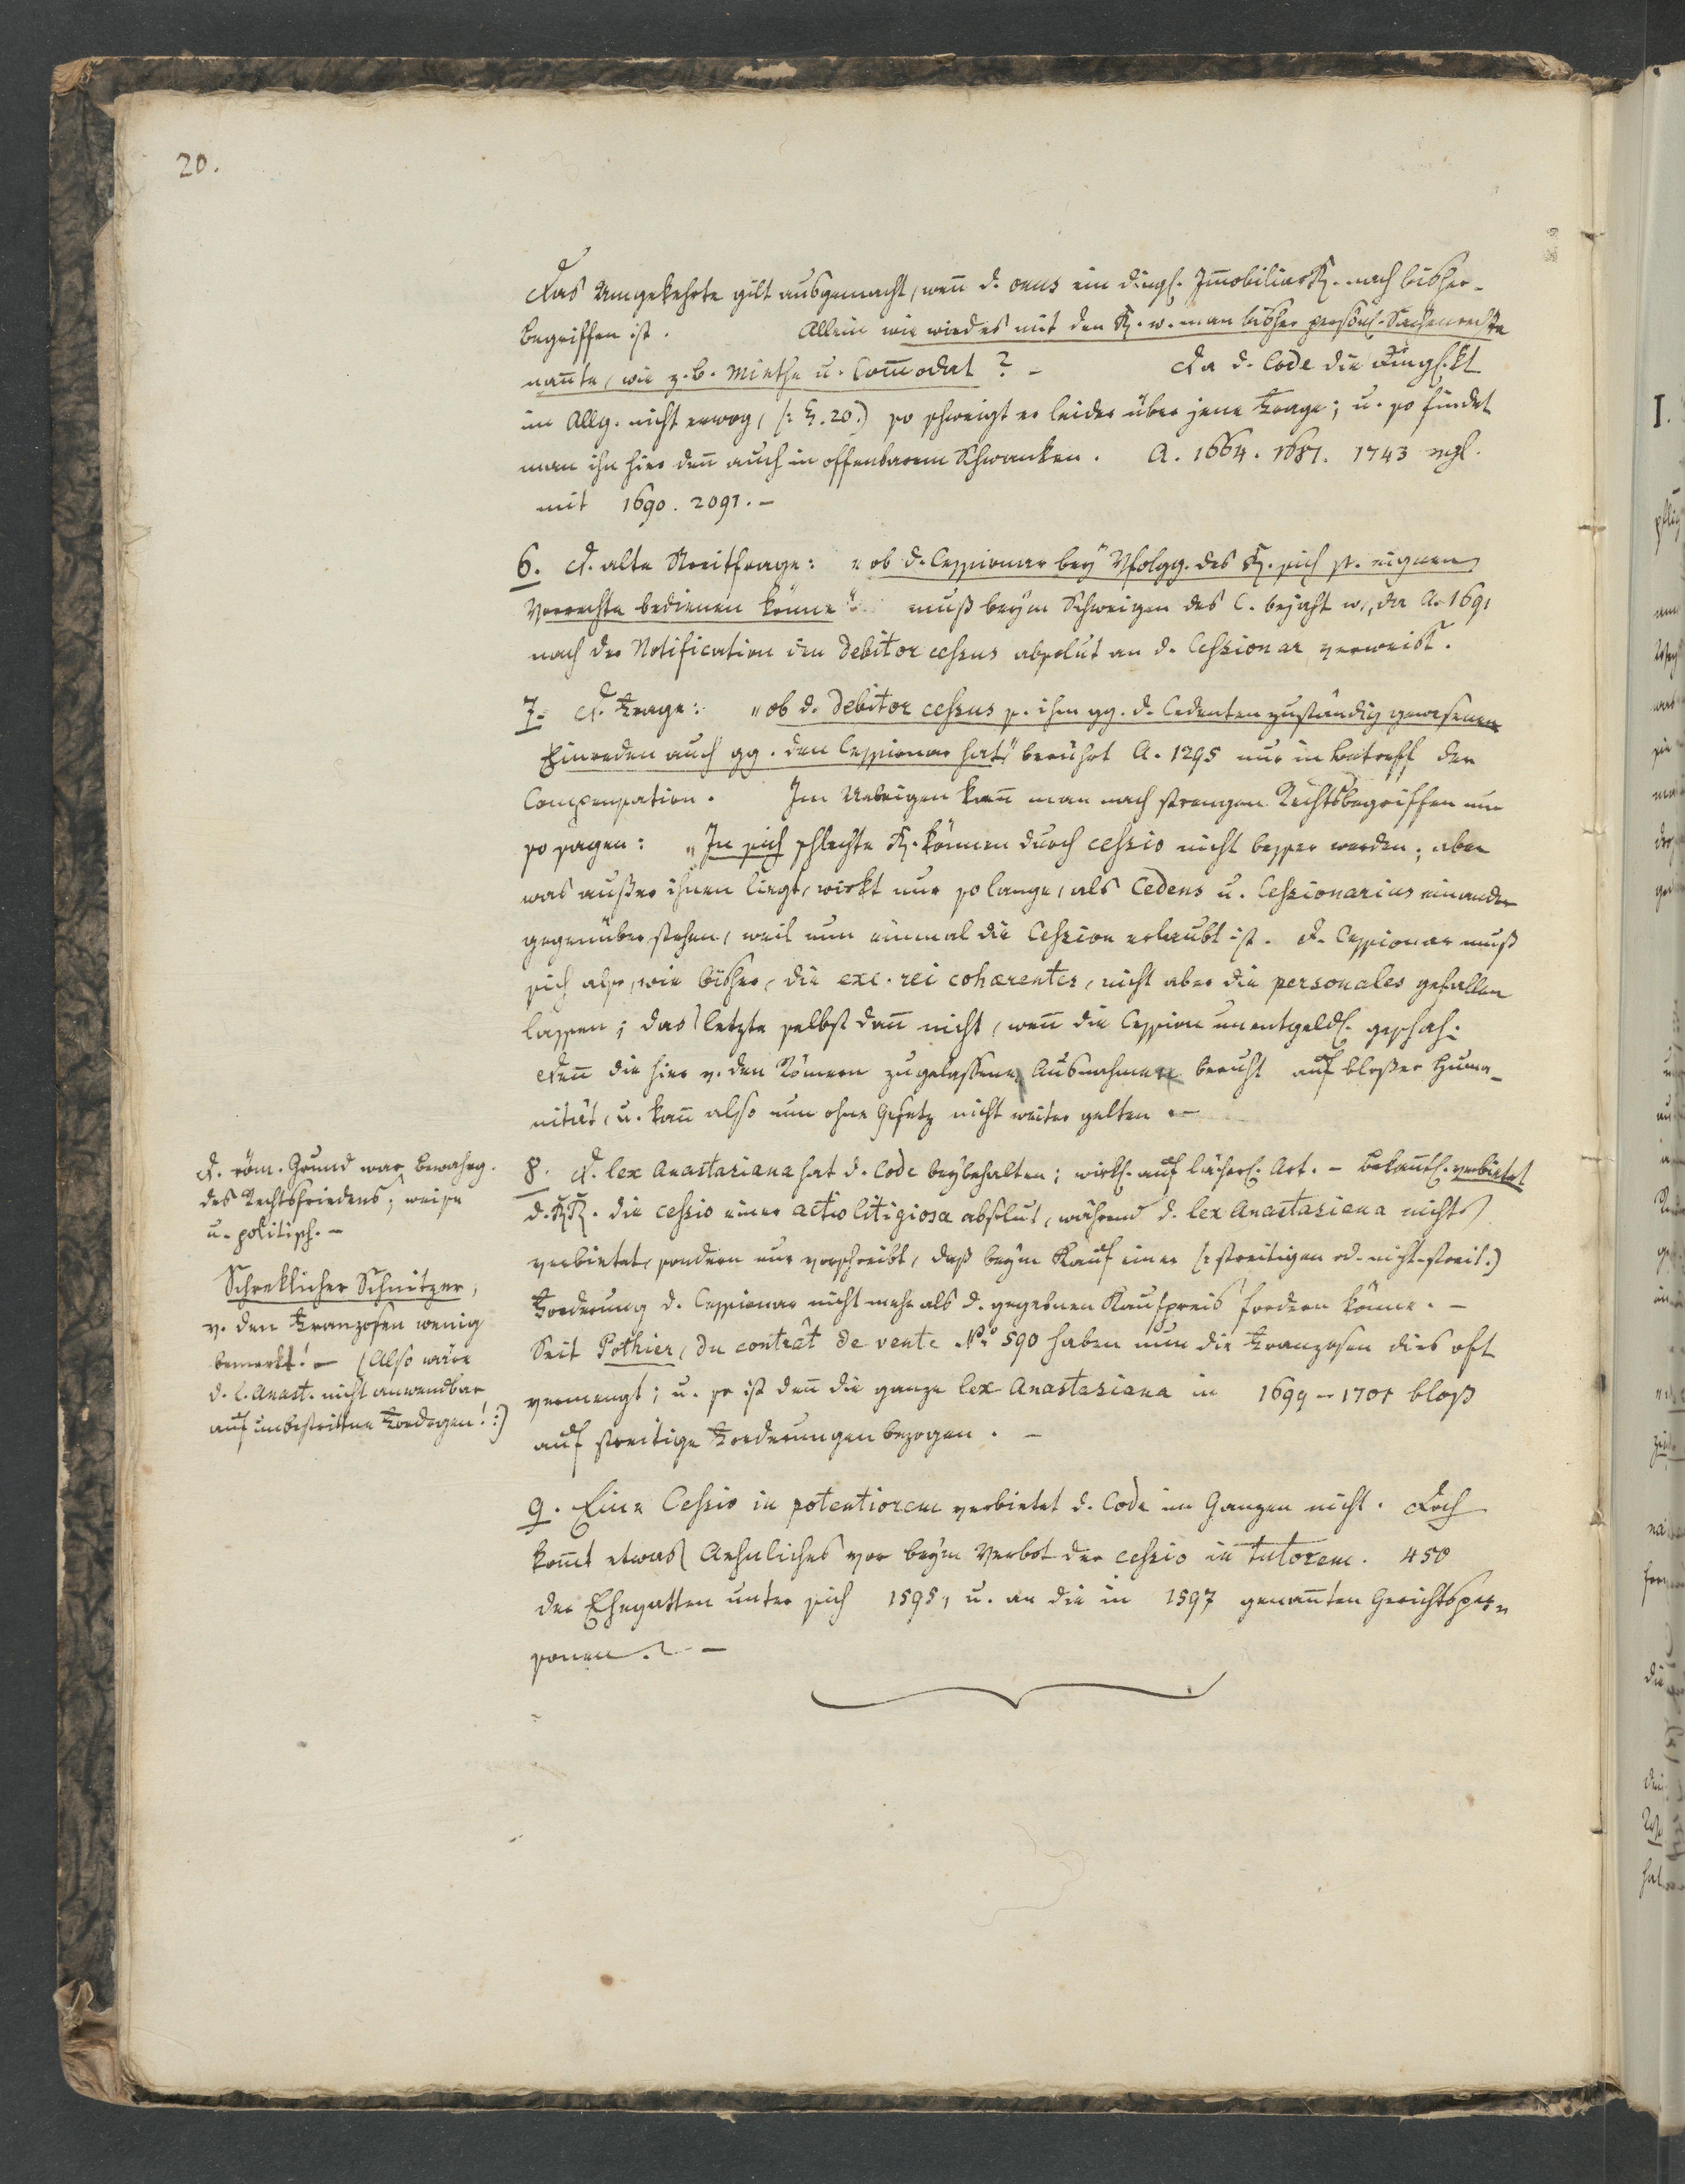 20.
Das Umgekehrte gilt ausgemacht, weñ d. onus ein dingl. Im̃obiliarR. nach bisher.
Begriffen ist. Allein wie wird es mit den R. w. man bisher persönl. Sachenrechte
nañte, wie z. B. Miethe u. Com̃odat? - Da d. Code die Dinglkt
im Allg. nicht erwog, (: §. 20:) so schweigt er leider über jene Frage; u. so findet
man ihn hier deñ auch in offenbarem Schwanken. A. 1664. 1681. 1743 vgl.
mit 1690. 2091. -
6. D. alte Streitfrage: "ob d. Cessionar bey Vfolgg. des R. sich sr. eignen
Vorrechte bedienen könne" muß beym Schweigen des C. bejaht w., da A. 1691
nach der Notification den debitor cessus absolut an d. Cessionar verweist.
7. D. Frage: "ob d. debitor cessus s. ihm gg. d. Cedenten zuständig gewesenen
Einreden auch gg. den Cessionar hat" berührt A. 1295 nur in Betreff der
Compensation. Im Uebrigen kañ man nach strengen Rechtsbegriffen nur
so sagen: "In sich schlechte R. können durch cessio nicht besser werden; aber
was außer ihnen liegt, wirkt nur so lange, als Cedens u. Cessionarius einander
gegenüber stehen, weil nun einmal die Cession erlaubt ist. D. Cessionar muß
sich also, wie bisher, die exc. rei cohærentes, nicht aber die personales gefallen
lassen; das letzte selbst dañ nicht, weñ die Cession unentgeldl. geschah.
Deñ die hier v. den Römern zugelassene Ausnahme beruht auf bloßer Huma-
nität, u. kañ also nun ohne Gesetz nicht weiter gelten. -
8. D. lex Anastasiana hat d. Code beybehalten; wirkl. auf lächerl. Art. - Bekañtl. verbietet
d. RR. die cessio einer actio litigiosa absolut, während d. lex Anastasiana nichts
verbietet, sondern nur vorschreibt, daß beym Kauf einer (: streitigen od. nicht-streit. :)
Forderung d. Cessionar nicht mehr als d. gegebnen Kaufpreis fordern könne. -
Seit Pothier, du contrât de vente No. 590 haben nun die Franzosen dies oft
vermengt; u. so ist deñ die ganze lex Anastasiana in 1699 - 1701 bloß
auf streitige Forderungen bezogen. -
9. Eine Cessio in potentiorem verbietet d. Code im Ganzen nicht. Doch
kom̃t etwas Aehnliches vor beym Verbot der cessio in tutorem. 450
der Ehegatten unter sich 1595, u. an die in 1597 genañten Gerichtsper-
sonen. -
D. röm. Grund war Bewahrg.
des Rechtsfriedens; weise
u. politisch. -
Schreklicher Schnitzer,
v. den Franzosen wenig
bemerkt! - (Also wäre
d. l. Anast. nicht anwendbar
auf unbestrittne Fordrgen! :)